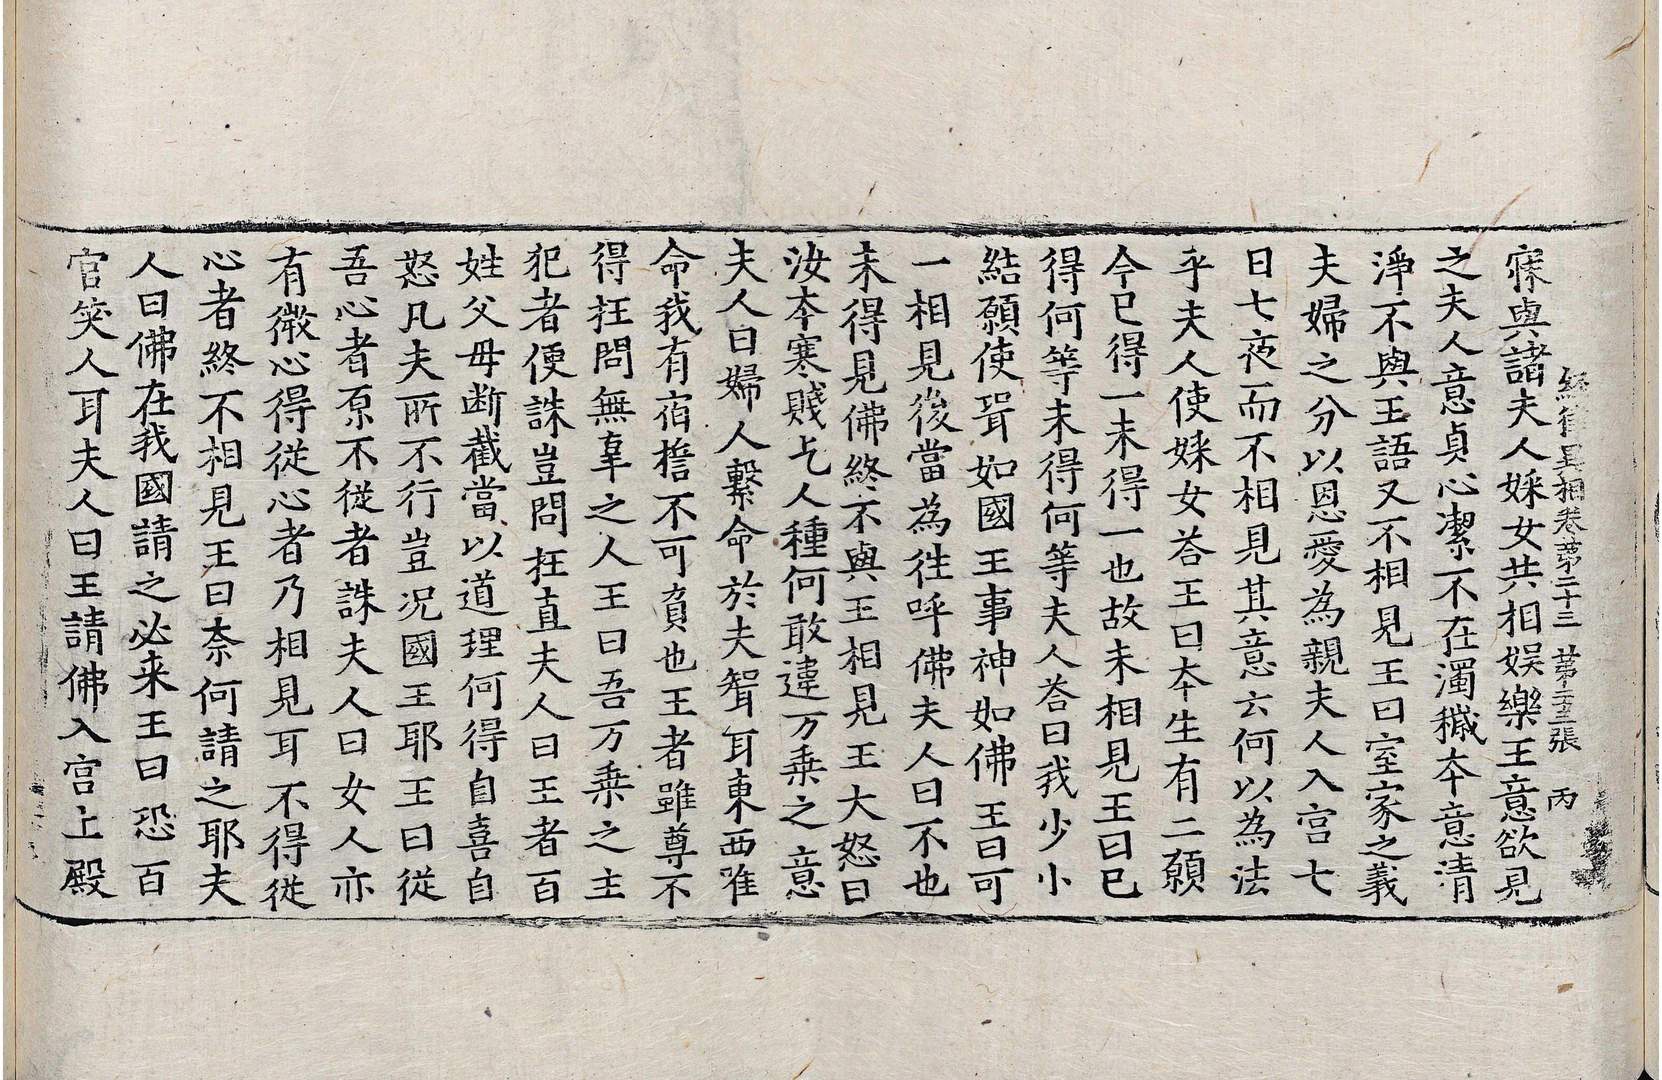 經律異相卷第二十三 第二十三張 丙
寐與諸夫人婇女共相娛樂王意欲見
之夫人意貞心潔不在濁穢本意清
淨不與王語又不相見王曰室家之義
夫婦之分以恩愛為親夫人入宮七
日七夜而不相見其意云何以為法
乎夫人使婇女荅王曰本生有二願
今已得一未得一也故未相見王曰已
得何等未得何等夫人荅曰我少小
結願使聟如國王事神如佛王曰可
一相見後當為往呼佛夫人曰不也
未得見佛終不與王相見王大怒曰
汝本寒賤乞人種何敢違万乗之意
夫人曰婦人繫命於夫聟耳東西唯
命我有宿擔不可負也王者雖尊不
得抂問無辜之人王曰吾万乗之主
犯者便誅豈問抂直夫人曰王者百
姓父母断截當以道理何得自喜自
怒凡夫所不行豈况國王耶王曰從
吾心者原不從者誅夫人曰女人亦
有微心得從心者乃相見耳不得從
心者終不相見王曰奈何請之耶夫
人曰佛在我國請之必来王曰恐百
官笑人耳夫人曰王請佛入宮上殿